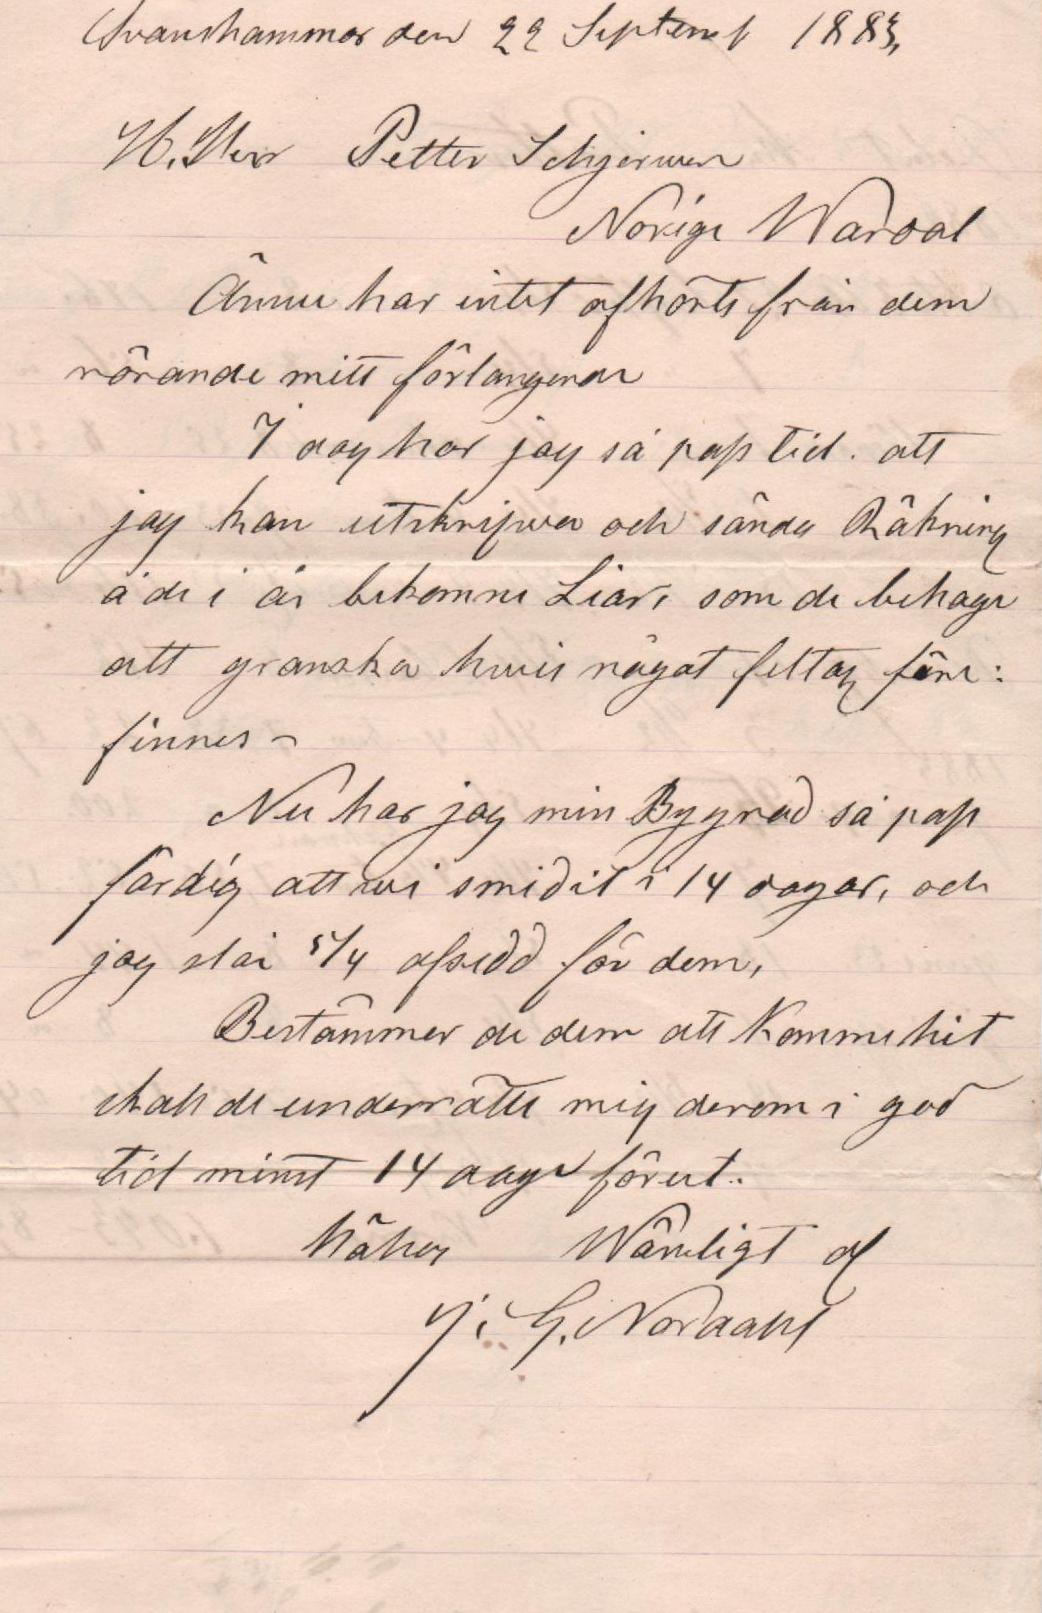 Svanshammar den 22 Septemb 1883,
H. Herr Petter Schjerwen
Norige Wardal
Ännu har intet afhörts från dem
rörande mitt förlangende
I dag har jag så pass tid. att
jag kan utskrifwa och sända Räkning
å de i år bekomne Liar, som de behage
att granska hwis något feltag före:
finnes –
Nu har jag min Bygnad så pass
färdig att wi smidit i 14 dagar, och
jag slår 5/4 afsedd för dem,
Bestämmer de dem att komme hit
skall de underrätte mig derom i god
tid minst 14 dage förut.
Wänligt af
J. G. Nordahl